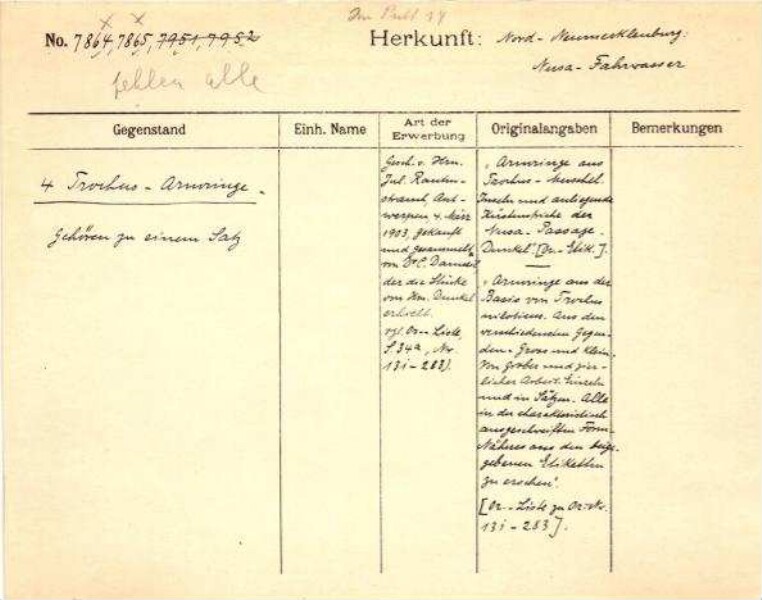 Im Pult 34
No. 7864, 7865, 7951, 7952
Herkunft: Nord-Neumecklenburg:
Nusa-Fahrwasser
fehlen alle
Gegenstand
Einh. Name
Art der
Erwerbung
Originalangaben
Bemerkungen
4 Trochus-Armringe.
Gehören zu einem Satz
Gesch. v. Hrn.
Jul. Rauten-
strauch, Ant-
werpen, 4. März
1903, gekauft
und gesammelt
von Dr. C. Damm
der die Stücke
von Hrn. Dunkel
erhielt.
vgl. Or-Liste,
S 34a, Nr.
131-283).
„Armringe aus
Trochus-Muschel.
Inseln und anliegende
Küstenstriche der
Nusa-Passage.
Dunkel". [Or.-Etik.].
„Armringe aus der
Basis von Trochus
niloticus. Aus den
verschiedensten Gegen-
den. Gross und Klein.
Von grober und zier-
licher Arbeit. Einzeln
und in Sätzen. Alle
in der charakteristisch
ausgeschweiften Form.
Näheres aus den beige-
gebenen Etiketten
zu ersehen".
[Or.-Liste zu Or.-Nr.
131-283].